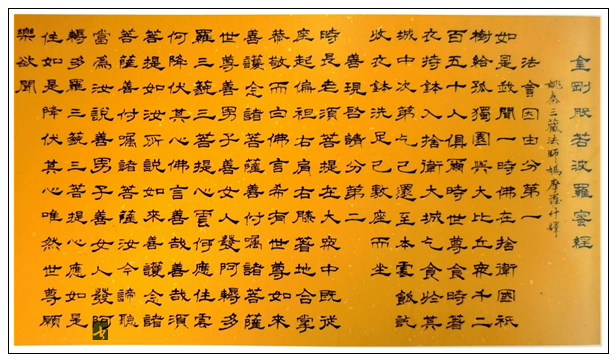 金剛般若波羅蜜經
姚秦三藏法師鳩摩羅什譯
法會因由分第一
如是我聞一時佛在捨衛國祇
樹給孤獨園與大比丘眾千二
百五十人俱爾時世尊食時著
衣持鉢入捨衛大城乞食於其
城中次第乞已還至本處飯訖
收衣鉢洗足已敷座而坐
善現啟請分第二
時長老須菩提在大眾中既從
座起偏袒右肩右膝著地合掌
恭敬而白佛言希有世尊如來
善護念諸菩薩善付囑諸菩薩
世尊善男子善女人發阿耨多
羅三藐三菩提心云何應住云
何降伏其心佛言善哉善哉須
菩提如汝所說如來善護念諸
菩薩善付囑諸菩薩汝今諦聽
當為汝說善男子善女人發阿
耨多羅三藐三菩提心應如是
住如是降伏其心唯然世尊願
樂欲聞